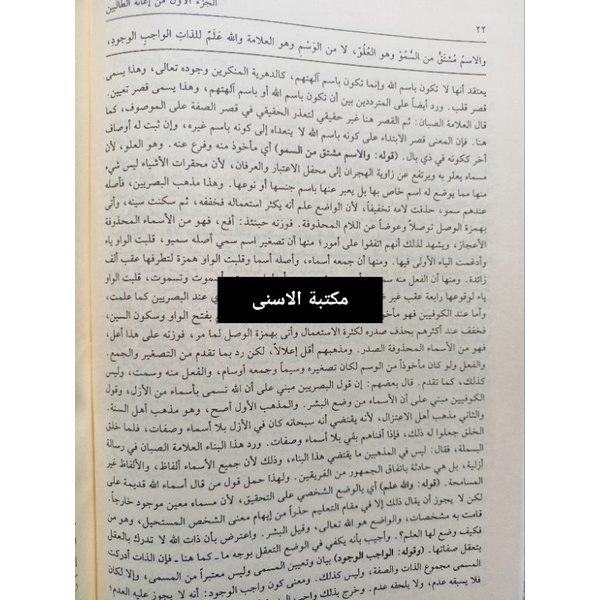 ٢٢
الجزء الأول من إعانة الطالبين
والاسمُ مُشْتَقٌّ من السُّمُوِّ وهو العُلُوّ، لا من الوَسْمِ وهو العلامة والله عَلَمٌ للذاتِ الواجبِ الوجودِ،
يعتقد أنها لا تكون باسم الله وإنما تكون باسم آلهتهم، كالدهرية المنكرين وجوده تعالى، وهذا يسمى
قصر قلب. ورد أيضاً على المترددين بين أن تكون باسم الله أو باسم آلهتهم، وهذا يسمى قصر تعيين.
قال العلامة الصبان: ثم القصر هنا غير حقيقي لتعذر الحقيقي في قصر الصفة على الموصوف، كما
هنا. فإن المعنى قصر الابتداء على كونه باسم الله لا يتعداه إلى كونه باسم غيره، وإن ثبت له أوصاف
أخر ككونه في ذي بال. (قوله: والاسم مشتق من السمو) أي مأخوذ منه وفرع عنه. وهو العلو، لأن
مسماه يعلو به ويرتفع عن زاوية الهجران إلى محفل الاعتبار والعرفان، لأن محقرات الأشياء ليس شيء
منها مما يوضع له اسم خاص بها بل يعبر عنها باسم جنسها أو نوعها. وهذا مذهب البصريين، فأصله
عندهم سمو، حذفت لامه تخفيفاً، لأن الواضع علم أنه يكثر استعماله فخففه، ثم سكنت سينه، وأتى
بهمزة الوصل توصلاً وعوضاً عن اللام المحذوفة. فوزنه حينئذ: أفع، فهو من الأسماء المحذوفة
الأعجاز، ويشهد لذلك أنهم اتفقوا على أمور؛ منها أن تصغير اسم سمي أصله سميو، قلبت الواو ياء
وأدغمت الياء الأولى فيها. ومنها أن جمعه أسماء، وأصله أسما وقلبت الواو همزة لتطرفها عقب ألف
زائدة. ومنها أن الفعل منه سم
أسموت وتسموت، قلبت الواو
ياء لوقوعها رابعة عقب غير
مكتبة الاسنى
ي عند البصريين كما علمت،
وأما عند الكوفيين فهو
و بفتح الواو وسكون السين،
فخفف عند أكثرهم بحذف صدره لكثرة الاستعمال وأتى بهمزة الوصل لما مر، فوزنه على هذا أعل،
فهو من الأسماء المحذوفة الصدر. ومذهبهم أقل إعلالاً، لكن رد بما تقدم من التصغير والجمع.
والفعل ولو كان مأخوذاً من الوسم لكان تصغيره وسيماً وجمعه أوسام، والفعل منه وسمت، وليس
كذلك، كما تقدم. قال بعضهم: إن قول البصريين مبني على أن الله تسمى بأسماء من الأزل، وقول
الكوفيين مبني على أن الأسماء من وضع البشر. والمذهب الأول أصح، وهو مذهب أهل السنة.
والثاني مذهب أهل الاعتزال، لأنه يقتضي أنه سبحانه كان في الأزل بلا أسماء وصفات، فلما خلق
الخلق جعلوا له ذلك، فإذا أفناهم بقي بلا أسماء وصفات. ورد هذا البناء العلامة الصبان في رسالة
البسملة، فقال: ليس في المذهبين ما يقتضي هذا البناء، وذلك لأن جميع الأسماء ألفاظ، والألفاظ غير
أزلية، بل هي حادثة باتفاق الجمهور من الفريقين. ولهذا حمل قول من قال أسماء الله قديمة على
المسامحة. (قوله: والله علم) أي بالوضع الشخصي على التحقيق، لأن مسماه معين موجود خارجاً.
لكن لا يجوز أن يقال ذلك إلا في مقام التعليم حذراً من إيهام معنى الشخص المستحيل، وهو من
قامت به مشخصات، والواضع هو الله تعالى، وقيل البشر. واعترض بأن ذات الله لا تدرك بالعقل
فكيف وضع لها العلم؟. وأجيب بأنه يكفي في الوضع التعقل بوجه ما ـ كما هنا ـ فإن الذات أدركت
بتعقل صفاتها. (وقوله: الواجب الوجود) بيان وتعيين المسمى وليس معتبراً من المسمى، وإلا لكان
المسمى مجموع الذات والصفة، وليس كذلك. ومعنى كون واجب الوجود: أنه لا يجوز عليه العدم؛
فلا يسبقه عدم، ولا يلحقه عدم. وخرج بذلك واجب